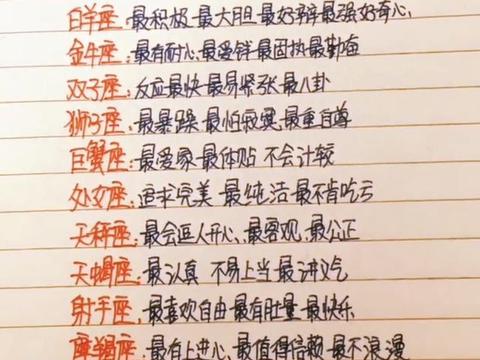 白羊座:最积极、最大胆、最好辩最强好奇心、
金牛座:最有耐心、最爱钱最固执最勤奋
双子座:反应最快最易紧张最八卦
狮子座:最暴躁最怕寂寞、最重自尊
巨蟹座:最爱家最体贴 不会计较
处女座:追求完美 最纯洁最不肯吃亏
天秤座:最会逗人开心、最客观、最公正
天蝎座:最认真 不易上当最讲义气
射手座:最喜欢自由最有肚量最快乐
摩羯座:最有上进心、最值得信赖 最不浪漫